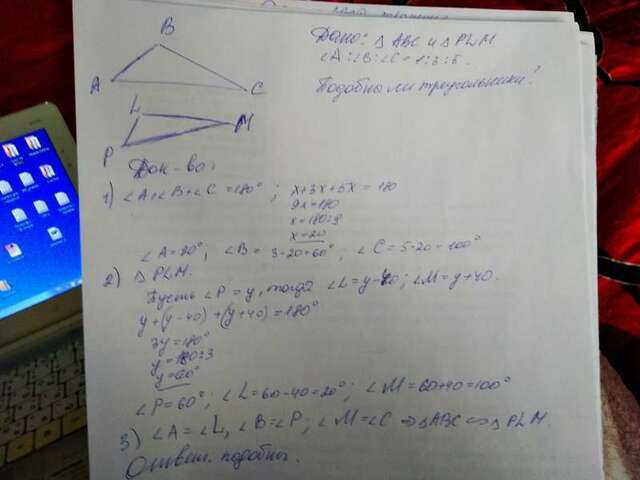 Дано: △ ABC и △ PLM
∠A:∠B:∠C = 1:3:5.
Подобны ли треугольники?
B
A
C
L
M
P
Док-во:
1) ∠A+∠B+∠C = 180°; x+3x+5x = 180
9x=180
x=180:9
x=20
∠A=20°, ∠B= 3·20=60°; ∠C=5·20=100°
2) △ PLM.
Пусть ∠P=y, тогда ∠L=y-40; ∠M=y+40.
y+(y-40)+(y+40)=180°
3y=180°
y=180:3
y=60°
∠P=60°; ∠L=60-40=20°; ∠M=60+40=100°
3) ∠A=∠L, ∠B=∠P; ∠M=∠C ⇒ △ABC ∽ △PLM.
Ответ: подобны.